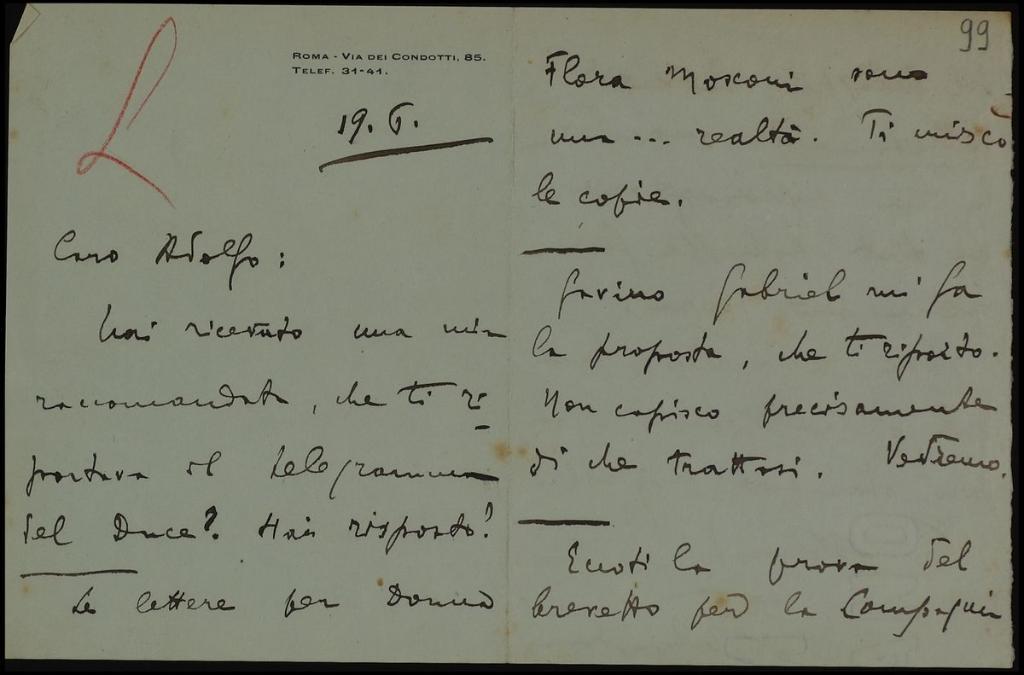 ROMA - VIA DEI CONDOTTI, 85.
TELEF. 31-41.
19. 6.
L
Caro Adolfo:
hai ricevuto una mia
raccomandata, che ti ri
portava il telegramma
del Duce? Hai risposto?
Le lettere per Donna
99
Flora Mosconi sono
una ... realtà. Ti unisco
le copie.
Gavino Gabriel mi fa
la proposta, che ti riporto.
Non capisco precisamente
di che trattasi. Vedremo.
Eccoti la prova del
brevetto per la Compagnia